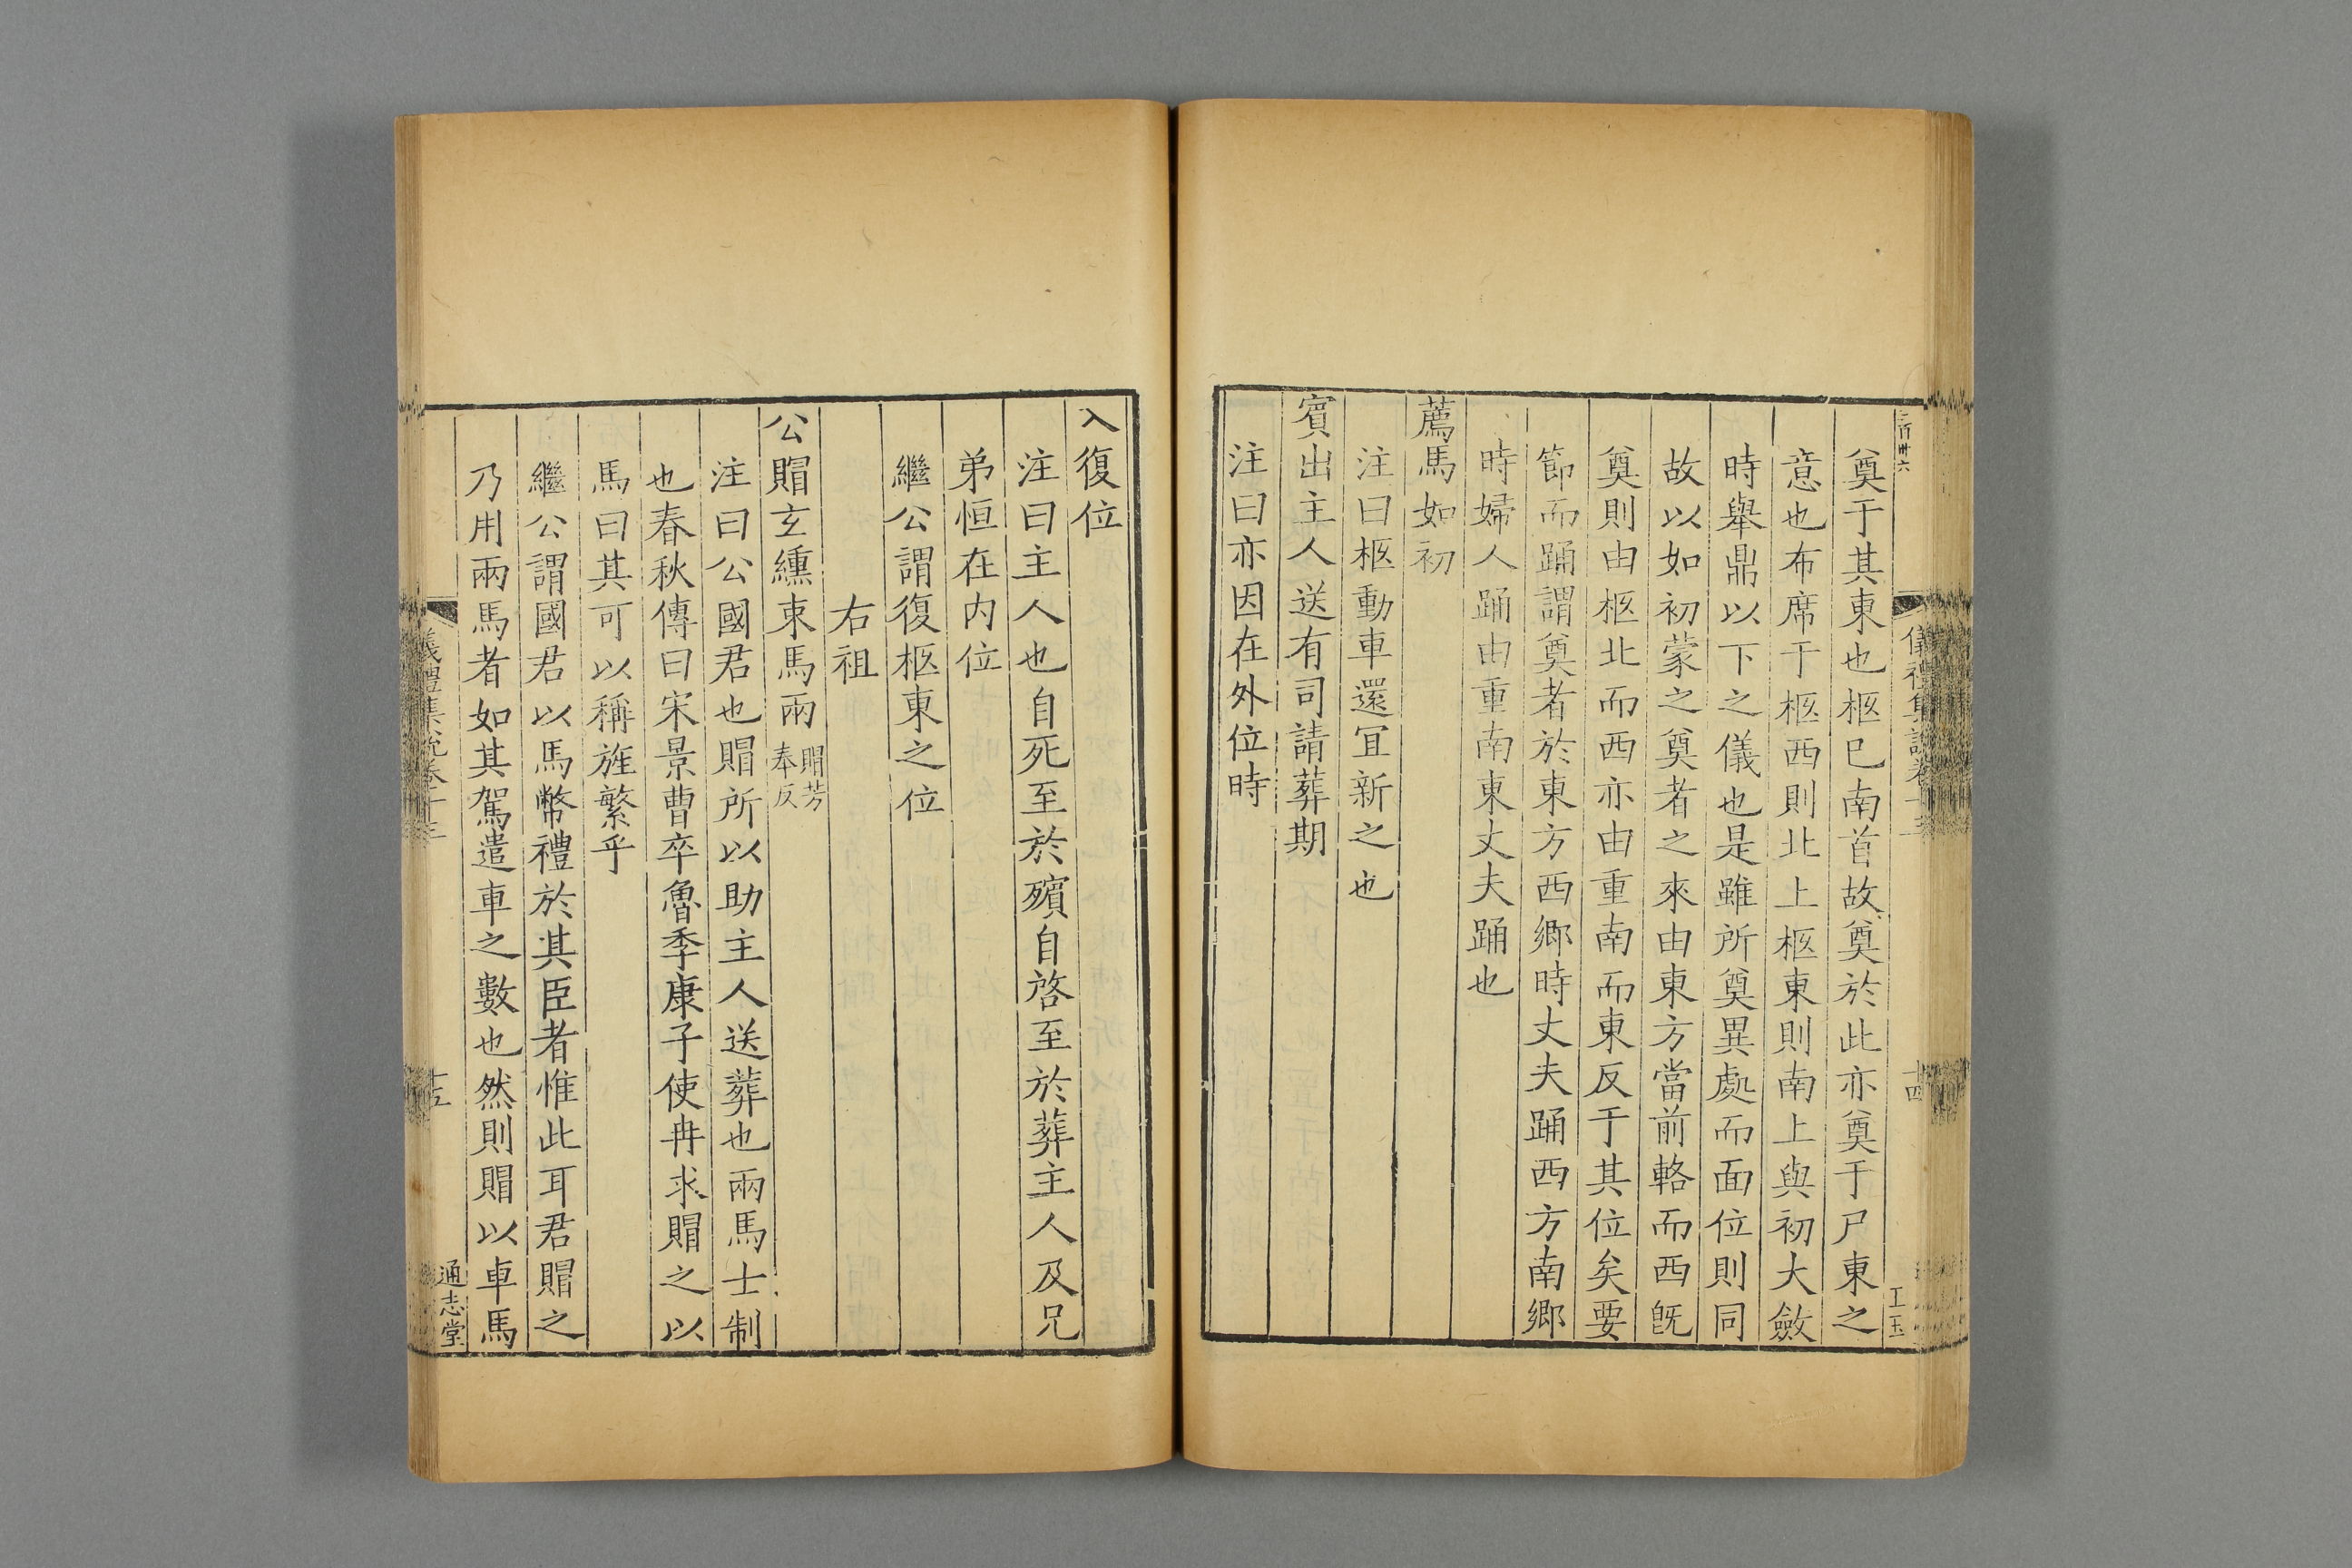 二百卅六
儀禮集說卷十三
十四
王玉
奠于其東也柩巳南首故奠於此亦奠于尸東之
意也布席于柩西則北上柩東則南上與初大斂
時舉鼎以下之儀也是雖所奠異處而面位則同
故以如初蒙之奠者之來由東方當前輅而西旣
奠則由柩北而西亦由重南而東反于其位矣要
節而踊謂奠者於東方西鄉時丈夫踊西方南鄉
時婦人踊由重南東丈夫踊也
薦馬如初
注曰柩動車還宜新之也
賓出主人送有司請葬期
注曰亦因在外位時
入復位
注曰主人也自死至於殯自啓至於葬主人及兄
弟恒在内位
繼公謂復柩東之位
右祖
公賵玄纁束馬兩賵芳奉反
注曰公國君也賵所以助主人送葬也兩馬士制
也春秋傳曰宋景曹卒魯季康子使冉求賵之以
馬曰其可以稱旌繁乎
繼公謂國君以馬幣禮於其臣者惟此耳君賵之
乃用兩馬者如其駕遣車之數也然則賵以車馬
儀禮集說卷十三
十五
通志堂